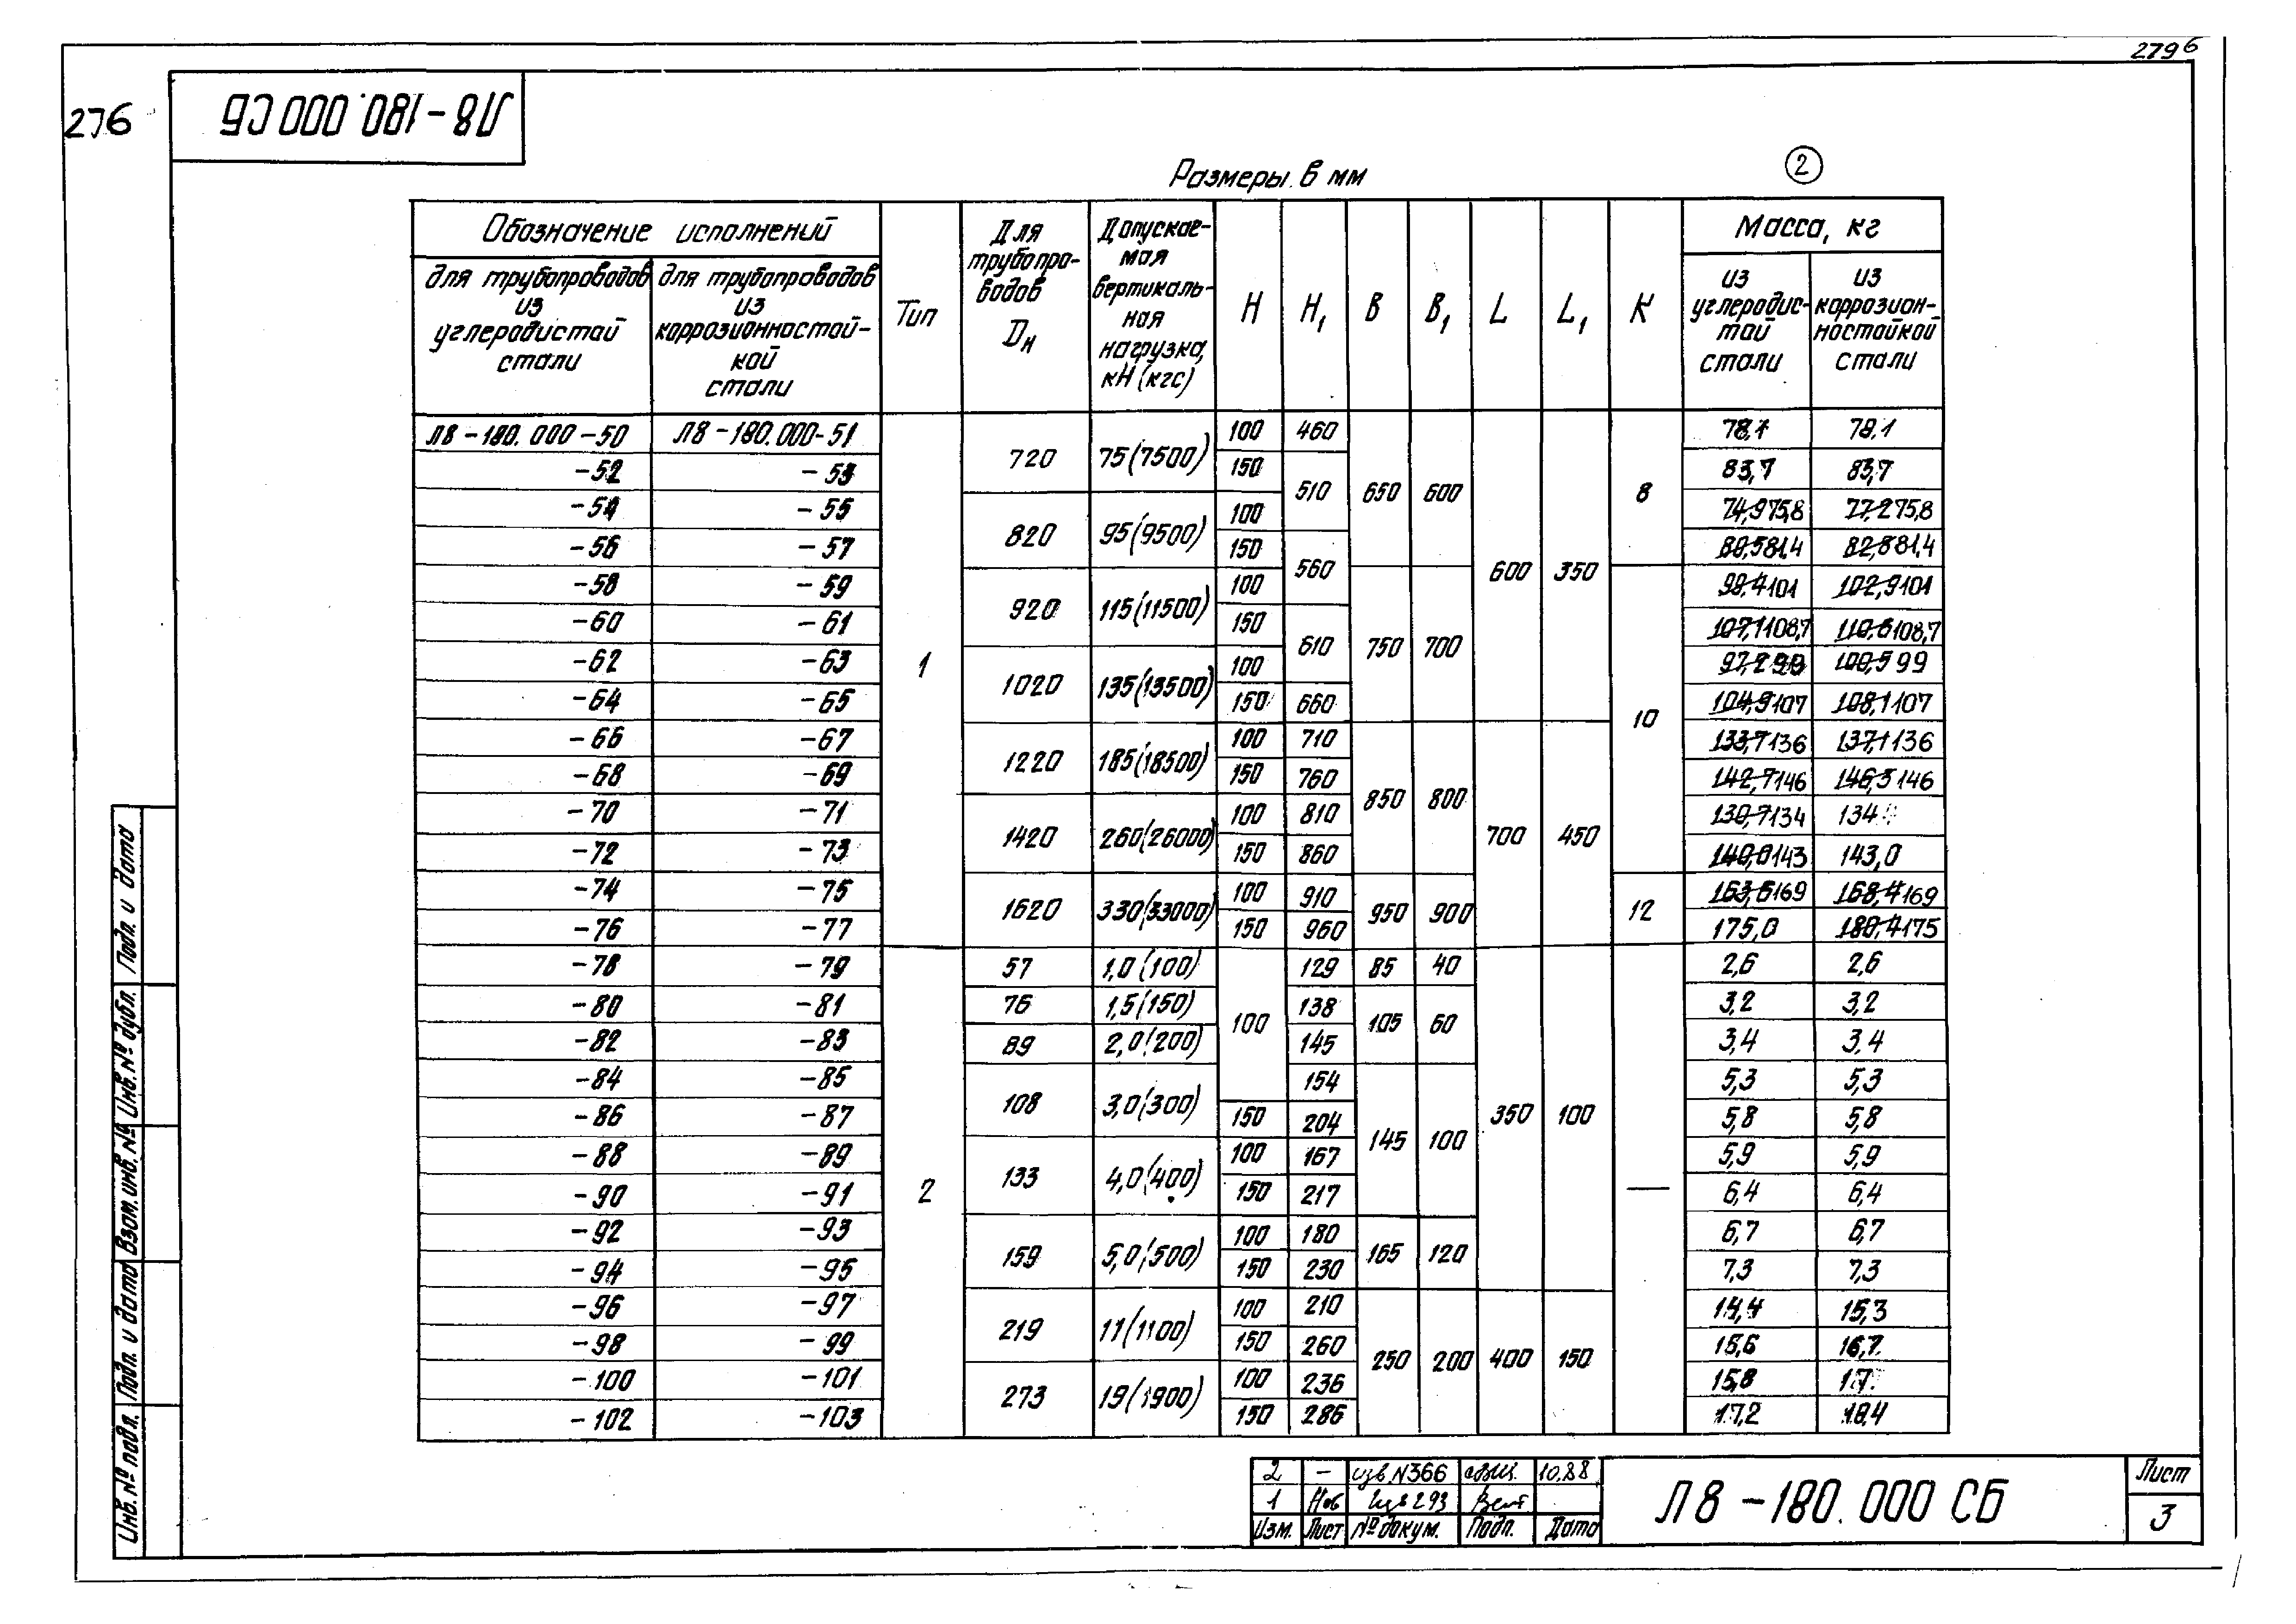 279б
276
Л8-180.000 СБ
Размеры в мм
2
Обозначение исполнений
для трубопроводов из углеродистой стали
для трубопроводов из коррозионностойкой стали
Тип
Для трубопроводов Dн
Допускаемая вертикальная нагрузка, кН (кгс)
H H1 B B1 L L1 K
Масса, кг
из углеродистой стали
из коррозионностойкой стали
Л8-180.000-50 Л8-180.000-51 1 720 75(7500) 100 460 650 600 600 350 8 78,1 78,1
-52 -53 150 510 83,7 83,7
-54 -55 820 95(9500) 100 74,9 75,8 77,2 75,8
-56 -57 150 560 80,5 81,4 82,8 81,4
-58 -59 920 115(11500) 100 750 700 10 98,4 101 102,9 101
-60 -61 150 610 107,1 108,7 110,6 108,7
-62 -63 1020 135(13500) 100 97,2 99 100,5 99
-64 -65 150 660 104,9 107 108,1 107
-66 -67 1220 185(18500) 100 710 850 800 700 450 133,7 136 137,1 136
-68 -69 150 760 142,7 146 146,3 146
-70 -71 1420 260(26000) 100 810 130,7 134 134
-72 -73 150 860 140,0 143 143,0
-74 -75 1620 330(33000) 100 910 950 900 12 163,6 169 168,4 169
-76 -77 150 960 175,0 180,4 175
-78 -79 2 57 1,0(100) 100 129 85 40 350 100 — 2,6 2,6
-80 -81 76 1,5(150) 138 105 60 3,2 3,2
-82 -83 89 2,0(200) 145 3,4 3,4
-84 -85 108 3,0(300) 154 145 100 5,3 5,3
-86 -87 150 204 5,8 5,8
-88 -89 133 4,0(400) 100 167 5,9 5,9
-90 -91 150 217 6,4 6,4
-92 -93 159 5,0(500) 100 180 165 120 6,7 6,7
-94 -95 150 230 7,3 7,3
-96 -97 219 11(1100) 100 210 250 200 400 150 14,4 15,3
-98 -99 150 260 15,6 16,7
-100 -101 273 19(1900) 100 236 15,8 17
-102 -103 150 286 17,2 18,4
Подп. и дата
Инв. № дубл.
Взам. инв. №
Подп. и дата
Инв. № подл.
2 — изв. N366 10.88
1 Изв 293
Изм. Лист № докум. Подп. Дата
Л8-180.000 СБ
Лист
3